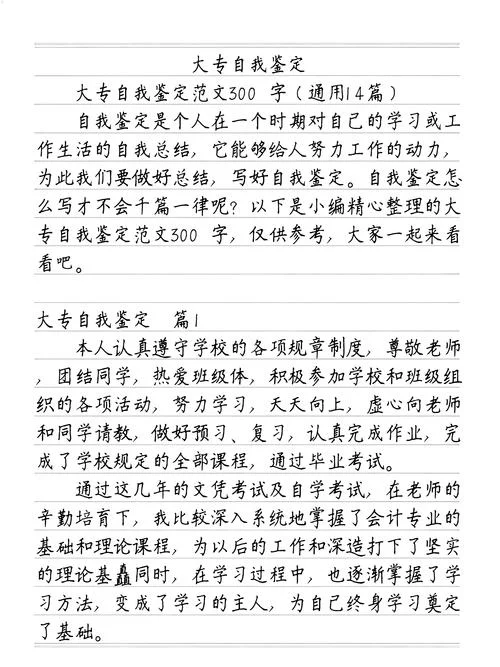 大专自我鉴定
大专自我鉴定范文300 字（通用14篇）
自我鉴定是个人在一个时期对自己的学习或工
作生活的自我总结，它能够给人努力工作的动力，
为此我们要做好总结，写好自我鉴定。自我鉴定怎
么写才不会千篇一律呢？以下是小编精心整理的大
专自我鉴定范文300 字，仅供参考，大家一起来看
看吧。
大专自我鉴定 篇1
本人认真遵守学校的各项规章制度，尊敬老师
，团结同学，热爱班级体，积极参加学校和班级组
织的各项活动，努力学习，天天向上，虚心向老师
和同学请教，做好预习、复习，认真完成作业，完
成了学校规定的全部课程，通过毕业考试。
通过这几年的文凭考试及自学考试，在老师的
辛勤培育下，我比较深入系统地掌握了会计专业的
基础和理论课程，为以后的工作和深造打下了坚实
的理论基矗同时，在学习过程中，也逐渐掌握了学
习方法，变成了学习的主人，为自己终身学习奠定
了基础。